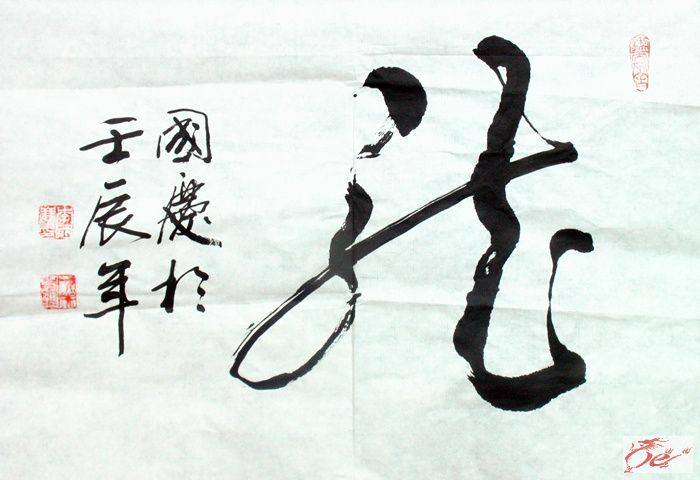 龙
國慶於
壬辰年